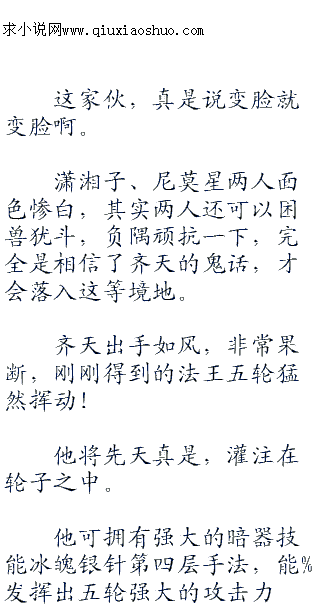 求小说网www.qiuxiaoshuo.com
这家伙，真是说变脸就
变脸啊。
潇湘子、尼莫星两人面
色惨白，其实两人还可以困
兽犹斗，负隅顽抗一下，完
全是相信了齐天的鬼话，才
会落入这等境地。
齐天出手如风，非常果
断，刚刚得到的法王五轮猛
然挥动！
他将先天真是，灌注在
轮子之中。
他可拥有强大的暗器技
能冰魄银针第四层手法，能%
发挥出五轮强大的攻击力